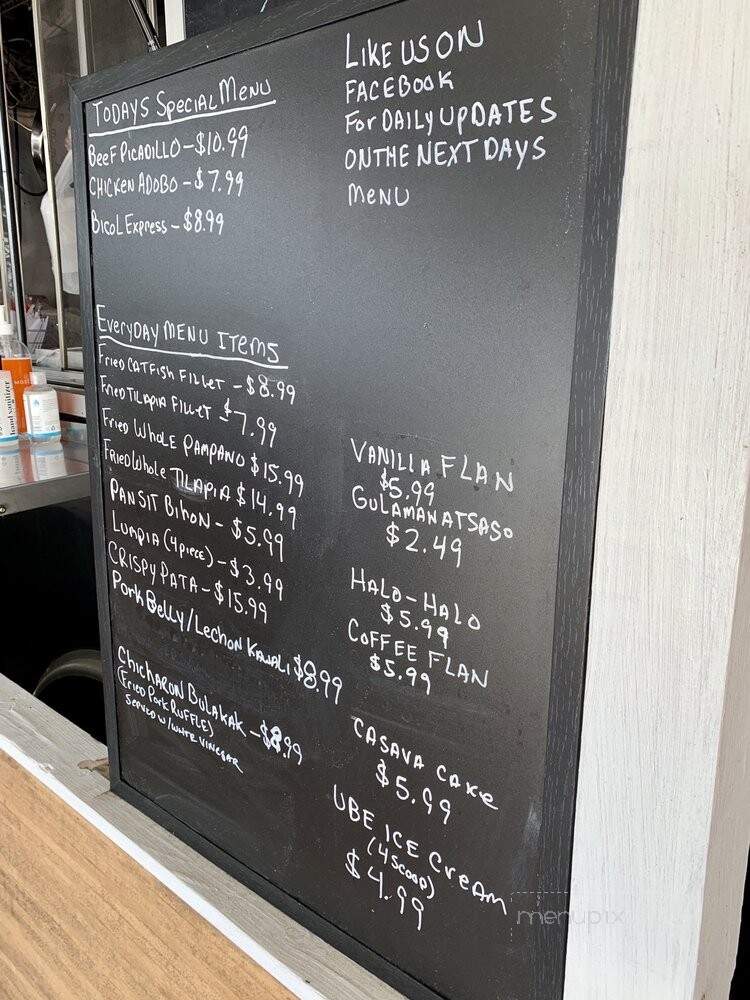 TODAYS SpecIal MeNU
BeeF PicADILLO - $10.99
CHICKEN ADOBO - $7.99
BicoL Express - $8.99
EveryDAY MENU ITEmS
FrieD CATFISH FILLET - $8.99
FrieD TILAPIA FILLET - $7.99
FrieD Whole PAMPANO $15.99
FRIED Whole TILAPIA $14.99
PANSIT BIhoN - $5.99
LUMPIA (4piece) - $3.99
CRISPY PATA - $15.99
Pork Belly/Lechon KAWALI $8.99
ChicharON BULAKAK - $8.99
(FrieD Pork RUFFLE)
SERVED W/WHITE VINEGAR
LIKE US ON
FACEBOOK
For DAILY UPDATES
ON THE NEXT DAYS
MeNU
VANILLA FLAN
$5.99
GULAMAN AT SAGO
$2.49
HALO-HALO
$5.99
COFFEE FLAN
$5.99
CASAVA CAKe
$5.99
UBE ICE CreAM
(4 Scoop)
$4.99
hand sanitizer
menupix